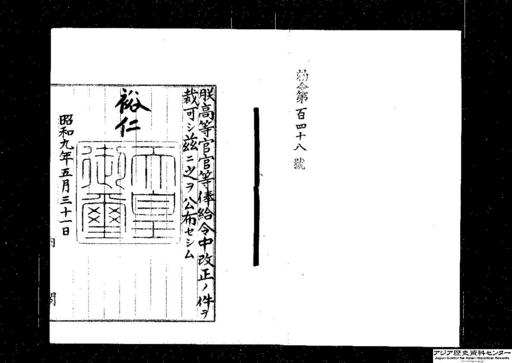 勅令第百四十八號
朕高等官官等俸給令中改正ノ件ヲ
裁可シ茲ニ之ヲ公布セシム
裕仁
天皇
御璽
昭和九年五月三十一日
内閣
アジア歴史資料センター
Japan Center for Asian Historical Records